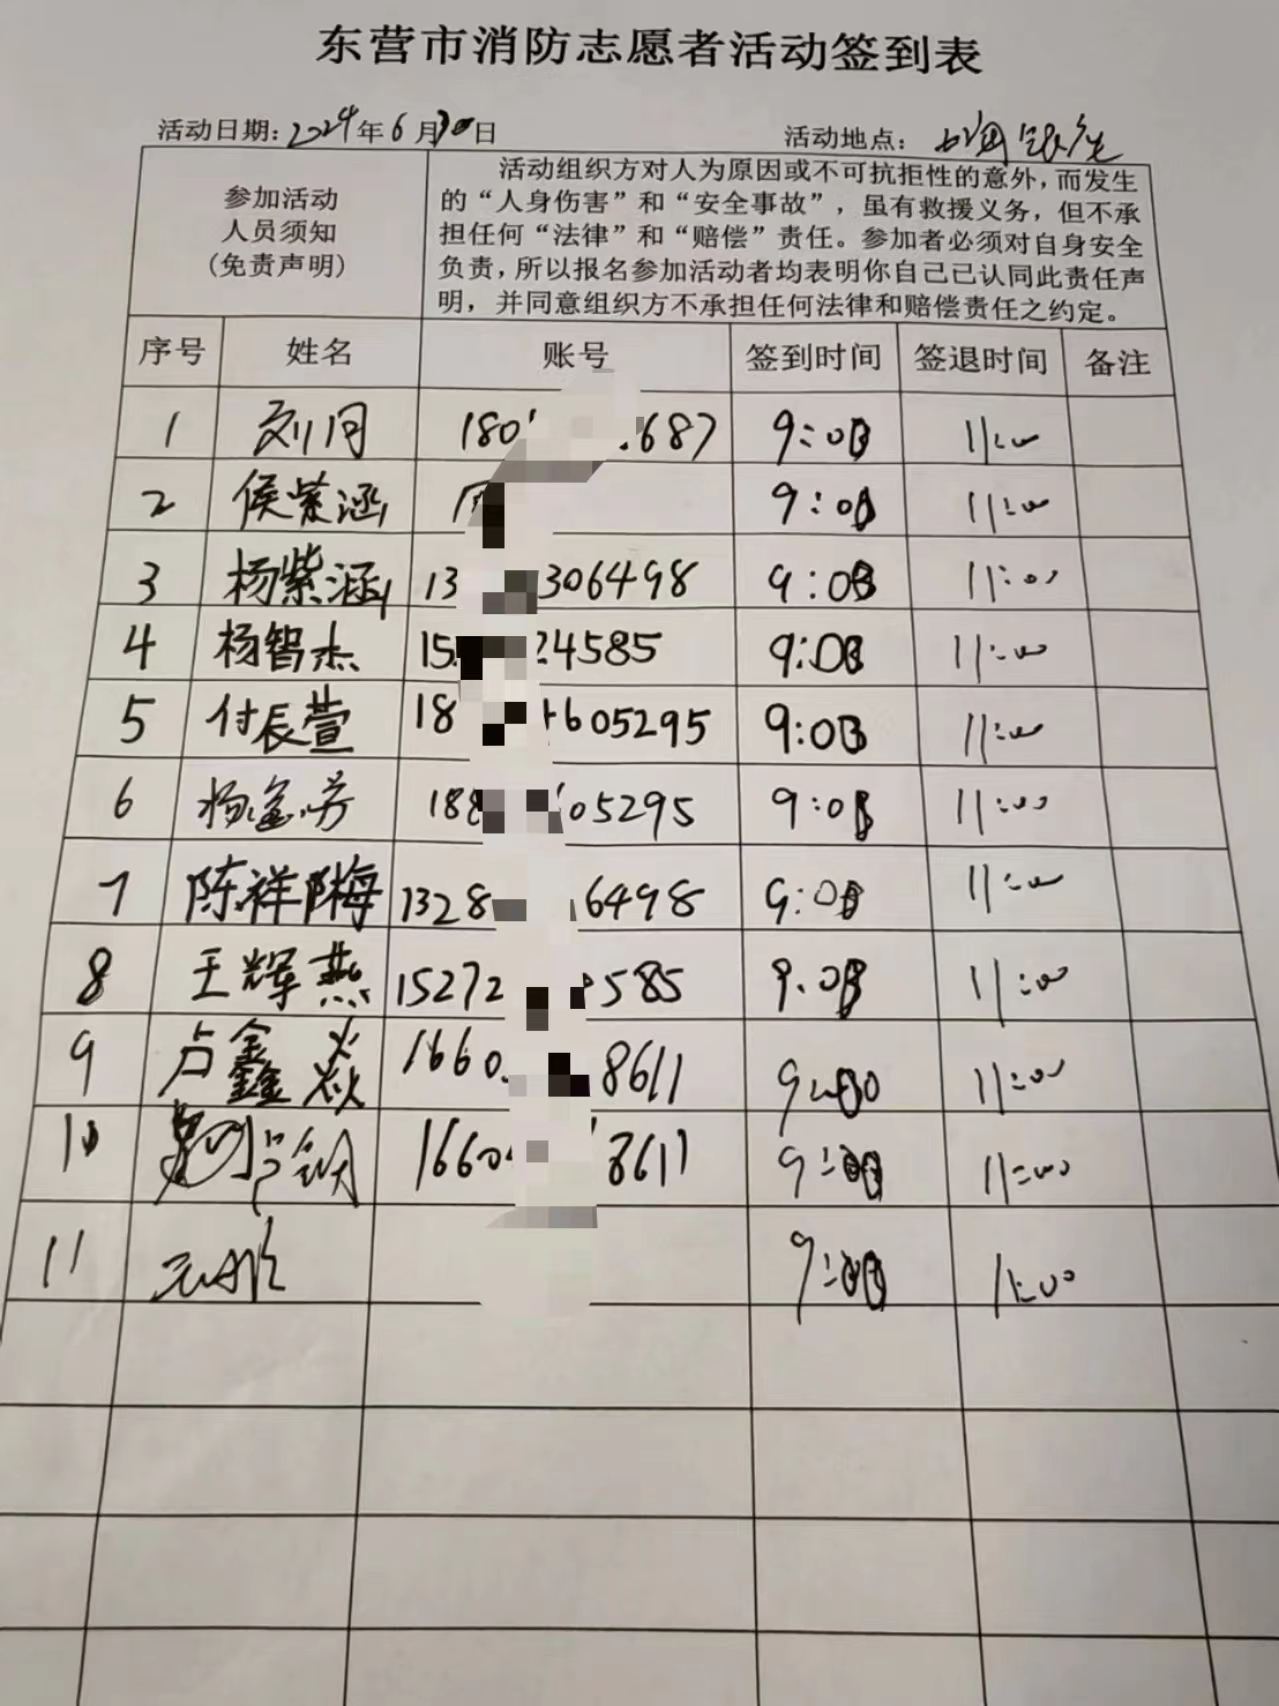 东营市消防志愿者活动签到表
活动日期：2024年6月30日 活动地点：
参加活动
人员须知
(免责声明)
活动组织方对人为原因或不可抗拒性的意外，而发生
的“人身伤害”和“安全事故”，虽有救援义务，但不承
担任何“法律”和“赔偿”责任。参加者必须对自身安全
负责，所以报名参加活动者均表明你自己已认同此责任声
明，并同意组织方不承担任何法律和赔偿责任之约定。
序号 姓名 账号 签到时间 签退时间 备注
1 刘同 180 687 9:00 11:00
2 侯紫涵 9:00 11:00
3 杨紫涵 13 306498 9:00 11:00
4 杨智杰 15 24585 9:00 11:00
5 付长萱 18 605295 9:00 11:00
6 杨金芳 188 05295 9:00 11:00
7 陈祥梅 1328 6498 9:00 11:00
8 王辉燕 15272 585 9:00 11:00
9 卢鑫焱 1660 8611 9:00 11:00
10 1660 8611 9:00 11:00
11 9:00 11:00